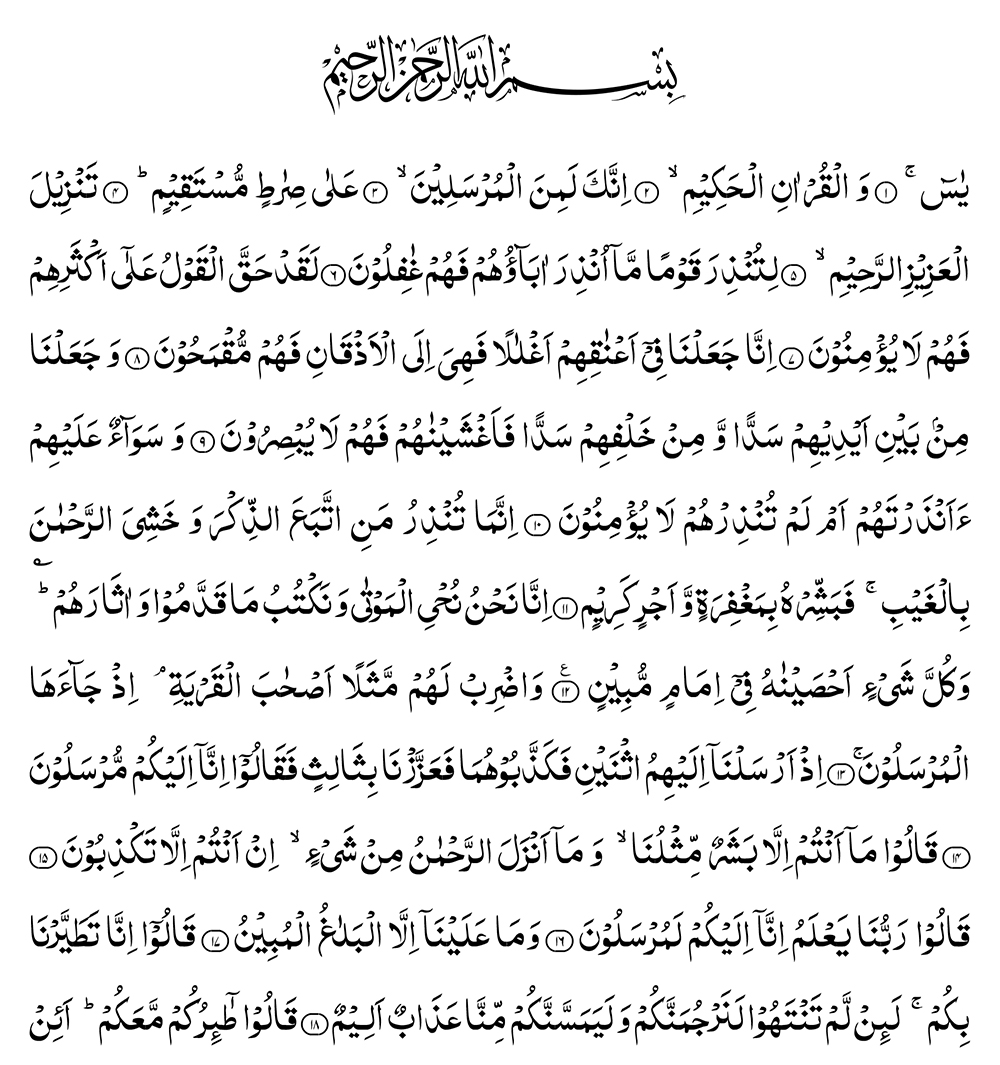 بِسْمِ اللّٰهِ الرَّحْمٰنِ الرَّحِيْمِ
يٰسٓ ۚ ﴿۱﴾ وَ الْقُرْاٰنِ الْحَكِيْمِ ۙ ﴿۲﴾ اِنَّكَ لَمِنَ الْمُرْسَلِيْنَ ۙ ﴿۳﴾ عَلٰى صِرٰطٍ مُّسْتَقِيْمٍ ؕ ﴿۴﴾ تَنْزِيْلَ
الْعَزِيْزِ الرَّحِيْمِ ۙ ﴿۵﴾ لِتُنْذِرَ قَوْمًا مَّاۤ اُنْذِرَ اٰبَآؤُهُمْ فَهُمْ غٰفِلُوْنَ ﴿۶﴾ لَقَدْ حَقَّ الْقَوْلُ عَلٰۤى اَكْثَرِهِمْ
فَهُمْ لَا يُؤْمِنُوْنَ ﴿۷﴾ اِنَّا جَعَلْنَا فِيْۤ اَعْنٰقِهِمْ اَغْلٰلًا فَهِيَ اِلَى الْاَذْقَانِ فَهُمْ مُّقْمَحُوْنَ ﴿۸﴾ وَ جَعَلْنَا
مِنْۢ بَيْنِ اَيْدِيْهِمْ سَدًّا وَّ مِنْ خَلْفِهِمْ سَدًّا فَاَغْشَيْنٰهُمْ فَهُمْ لَا يُبْصِرُوْنَ ﴿۹﴾ وَ سَوَآءٌ عَلَيْهِمْ
ءَاَنْذَرْتَهُمْ اَمْ لَمْ تُنْذِرْهُمْ لَا يُؤْمِنُوْنَ ﴿۱۰﴾ اِنَّمَا تُنْذِرُ مَنِ اتَّبَعَ الذِّكْرَ وَ خَشِيَ الرَّحْمٰنَ
بِالْغَيْبِ ۚ فَبَشِّرْهُ بِمَغْفِرَةٍ وَّ اَجْرٍ كَرِيْمٍ ﴿۱۱﴾ اِنَّا نَحْنُ نُحْيِ الْمَوْتٰى وَ نَكْتُبُ مَا قَدَّمُوْا وَ اٰثَارَهُمْ ؕؔ
وَ كُلَّ شَيْءٍ اَحْصَيْنٰهُ فِيْۤ اِمَامٍ مُّبِيْنٍ ﴿۱۲﴾ ۧ وَ اضْرِبْ لَهُمْ مَّثَلًا اَصْحٰبَ الْقَرْيَةِ ۘ اِذْ جَآءَهَا
الْمُرْسَلُوْنَ ۚ ﴿۱۳﴾ اِذْ اَرْسَلْنَاۤ اِلَيْهِمُ اثْنَيْنِ فَكَذَّبُوْهُمَا فَعَزَّزْنَا بِثَالِثٍ فَقَالُوْۤا اِنَّاۤ اِلَيْكُمْ مُّرْسَلُوْنَ
﴿۱۴﴾ قَالُوْا مَاۤ اَنْتُمْ اِلَّا بَشَرٌ مِّثْلُنَا ۙ وَ مَاۤ اَنْزَلَ الرَّحْمٰنُ مِنْ شَيْءٍ ۙ اِنْ اَنْتُمْ اِلَّا تَكْذِبُوْنَ ﴿۱۵﴾
قَالُوْا رَبُّنَا يَعْلَمُ اِنَّاۤ اِلَيْكُمْ لَمُرْسَلُوْنَ ﴿۱۶﴾ وَ مَا عَلَيْنَاۤ اِلَّا الْبَلٰغُ الْمُبِيْنُ ﴿۱۷﴾ قَالُوْۤا اِنَّا تَطَيَّرْنَا
بِكُمْ ۚ لَىِٕنْ لَّمْ تَنْتَهُوْا لَنَرْجُمَنَّكُمْ وَ لَيَمَسَّنَّكُمْ مِّنَّا عَذَابٌ اَلِيْمٌ ﴿۱۸﴾ قَالُوْا طَآىِٕرُكُمْ مَّعَكُمْ ؕ اَىِٕنْ